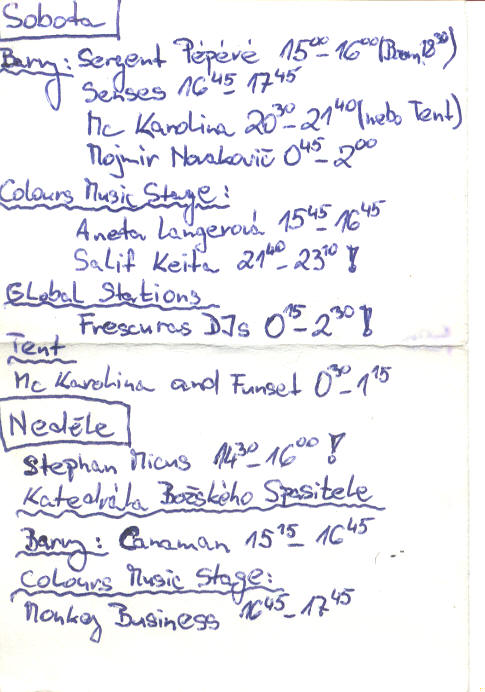 Sobota
Barvy: Sergent Pépéré 15⁰⁰–16⁰⁰ (Brom. 18³⁰)
Senses 16⁴⁵–17⁴⁵
Mc Karolina 20³⁰–21⁴⁰ (nebo Tent)
Mojmir Novakovič 0⁴⁵–2⁰⁰
Colours Music Stage:
Aneta Langerová 15⁴⁵–16⁴⁵
Salif Keita 21⁴⁰–23¹⁰ !
Global Stations
Frescuras DJs 0¹⁵–2³⁰ !
Tent
Mc Karolina and Funset 0³⁰–1¹⁵
Neděle
Stephan Micus 14³⁰–16⁰⁰ !
Katedrála Božského Spasitele
Barvy: Canaman 15¹⁵–16⁴⁵
Colours Music Stage:
Monkey Business 16⁴⁵–17⁴⁵